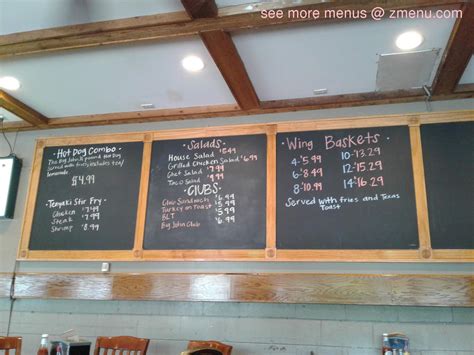 see more menus @ zmenu.com
Hot Dog Combo
The Big John ¼ pound Hot Dog
served with fries includes tea/
lemonade
$4.99
Teriyaki Stir Fry
Chicken $7.99
Steak $7.99
Shrimp $8.99
Salads
House Salad $5.49
Grilled Chicken Salad $6.99
Chef Salad $7.99
Taco Salad
CLUBS
Club Sandwich $6.99
Turkey on Toast $5.99
BLT $5.99
Big John Club $6.99
Wing Baskets
4-$5.99 10-$13.29
6-$8.99 12-$15.29
8-$10.99 14-$16.29
Served with fries and Texas
Toast